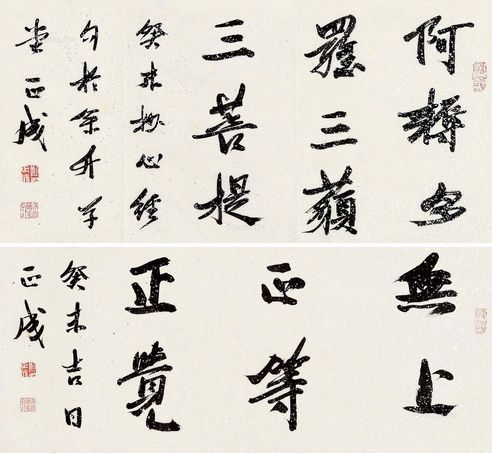 阿耨多
羅三藐
三菩提
癸未抄心經
句於松竹草
堂 正成
無上
正等
正覺
癸未吉日
正成